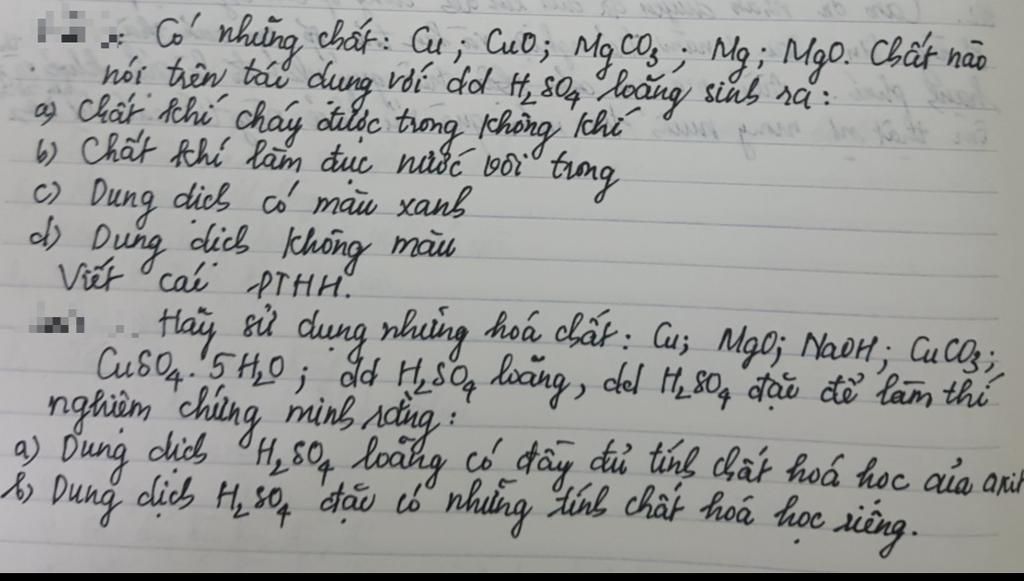 Có những chất: Cu; CuO; MgCO₃; Mg; MgO. Chất nào
nói trên tác dụng với dd H₂SO₄ loãng sinh ra:
a) Chất khí cháy được trong không khí
b) Chất khí làm đục nước vôi trong
c) Dung dịch có màu xanh
d) Dung dịch không màu
Viết các PTHH.
Hãy sử dụng những hoá chất: Cu; MgO; NaOH; CuCO₃;
CuSO₄.5H₂O; dd H₂SO₄ loãng, dd H₂SO₄ đặc để làm thí
nghiệm chứng minh rằng:
a) Dung dịch H₂SO₄ loãng có đầy đủ tính chất hoá học của axit
b) Dung dịch H₂SO₄ đặc có những tính chất hoá học riêng.